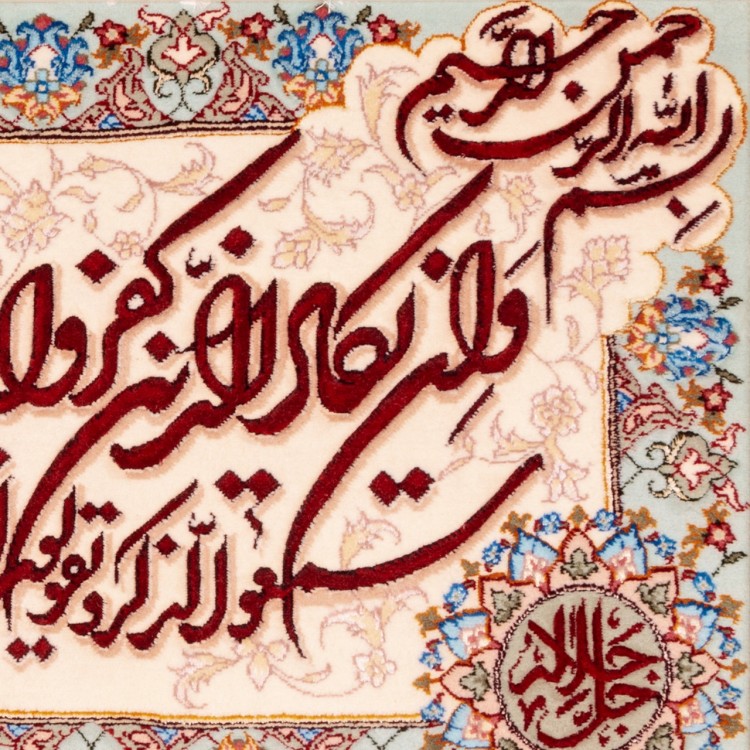 بسم الله الرحمن الرحیم
وَاِن یکاد الّذین کفروا
سمعوا الّذکر و یقولون
جل جلاله